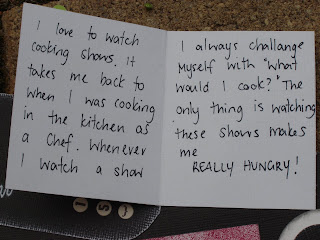 I love to watch
cooking shows. It
takes me back to
when I was cooking
in the kitchen as
a chef. Whenever
I watch a show
I always challange
myself with "what
would I cook?" The
only thing is watching
these shows makes
me
REALLY HUNGRY!